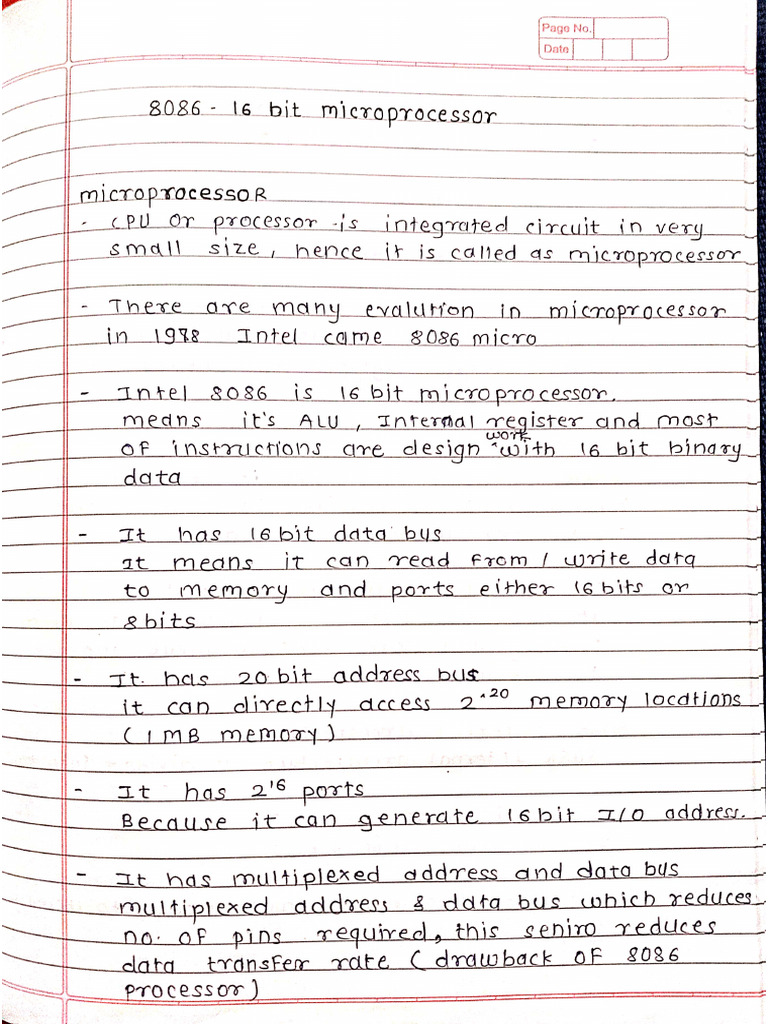 Page No.
Date
8086 - 16 bit microprocessor
microprocessoR
- CPU Or processor is integrated circuit in very
small size, hence it is called as microprocessor
- There are many evalution in microprocessor
in 1978 Intel came 8086 micro
- Intel 8086 is 16 bit microprocessor.
means it's ALU, Internal register and most
work
of instructions are design ^with 16 bit binary
data
- It has 16 bit data bus
It means it can read from / write data
to memory and ports either 16 bits or
8 bits
- It has 20 bit address bus
it can directly access 2^20 memory locations
(1 MB memory)
- It has 2¹⁶ ports
Because it can generate 16 bit I/O address.
- It has multiplexed address and data bus
multiplexed address & data bus which reduces
no. of pins required, this seniro reduces
data transfer rate (drawback of 8086
processor)